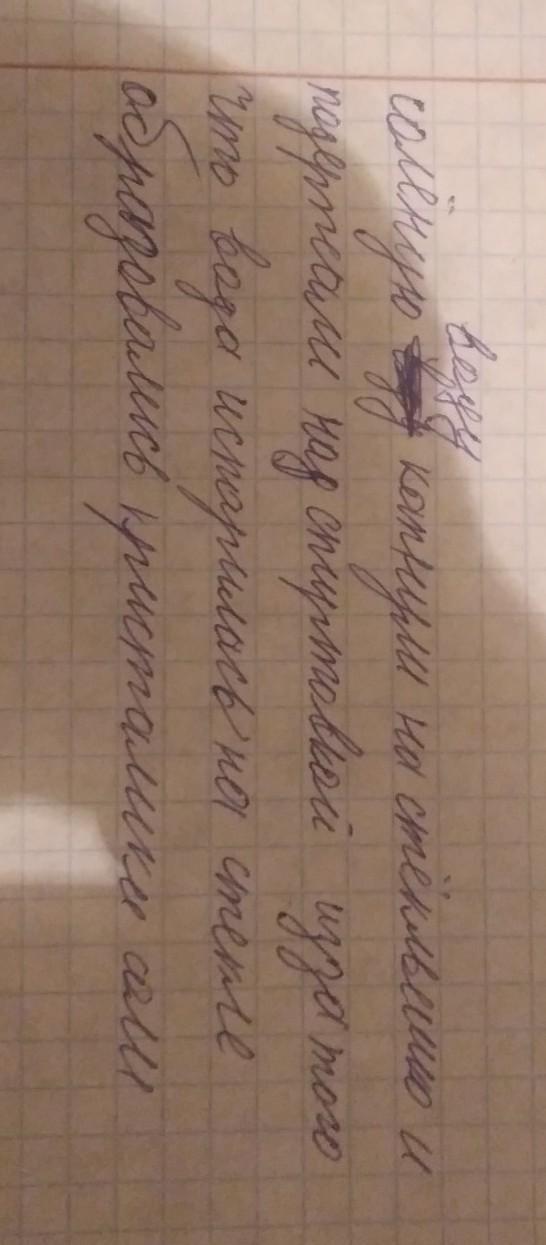 солёную воду капнули на стёклышко и
подержали над спиртовкой изза того
что вода испарилась на стекле
образовались кристалики соли